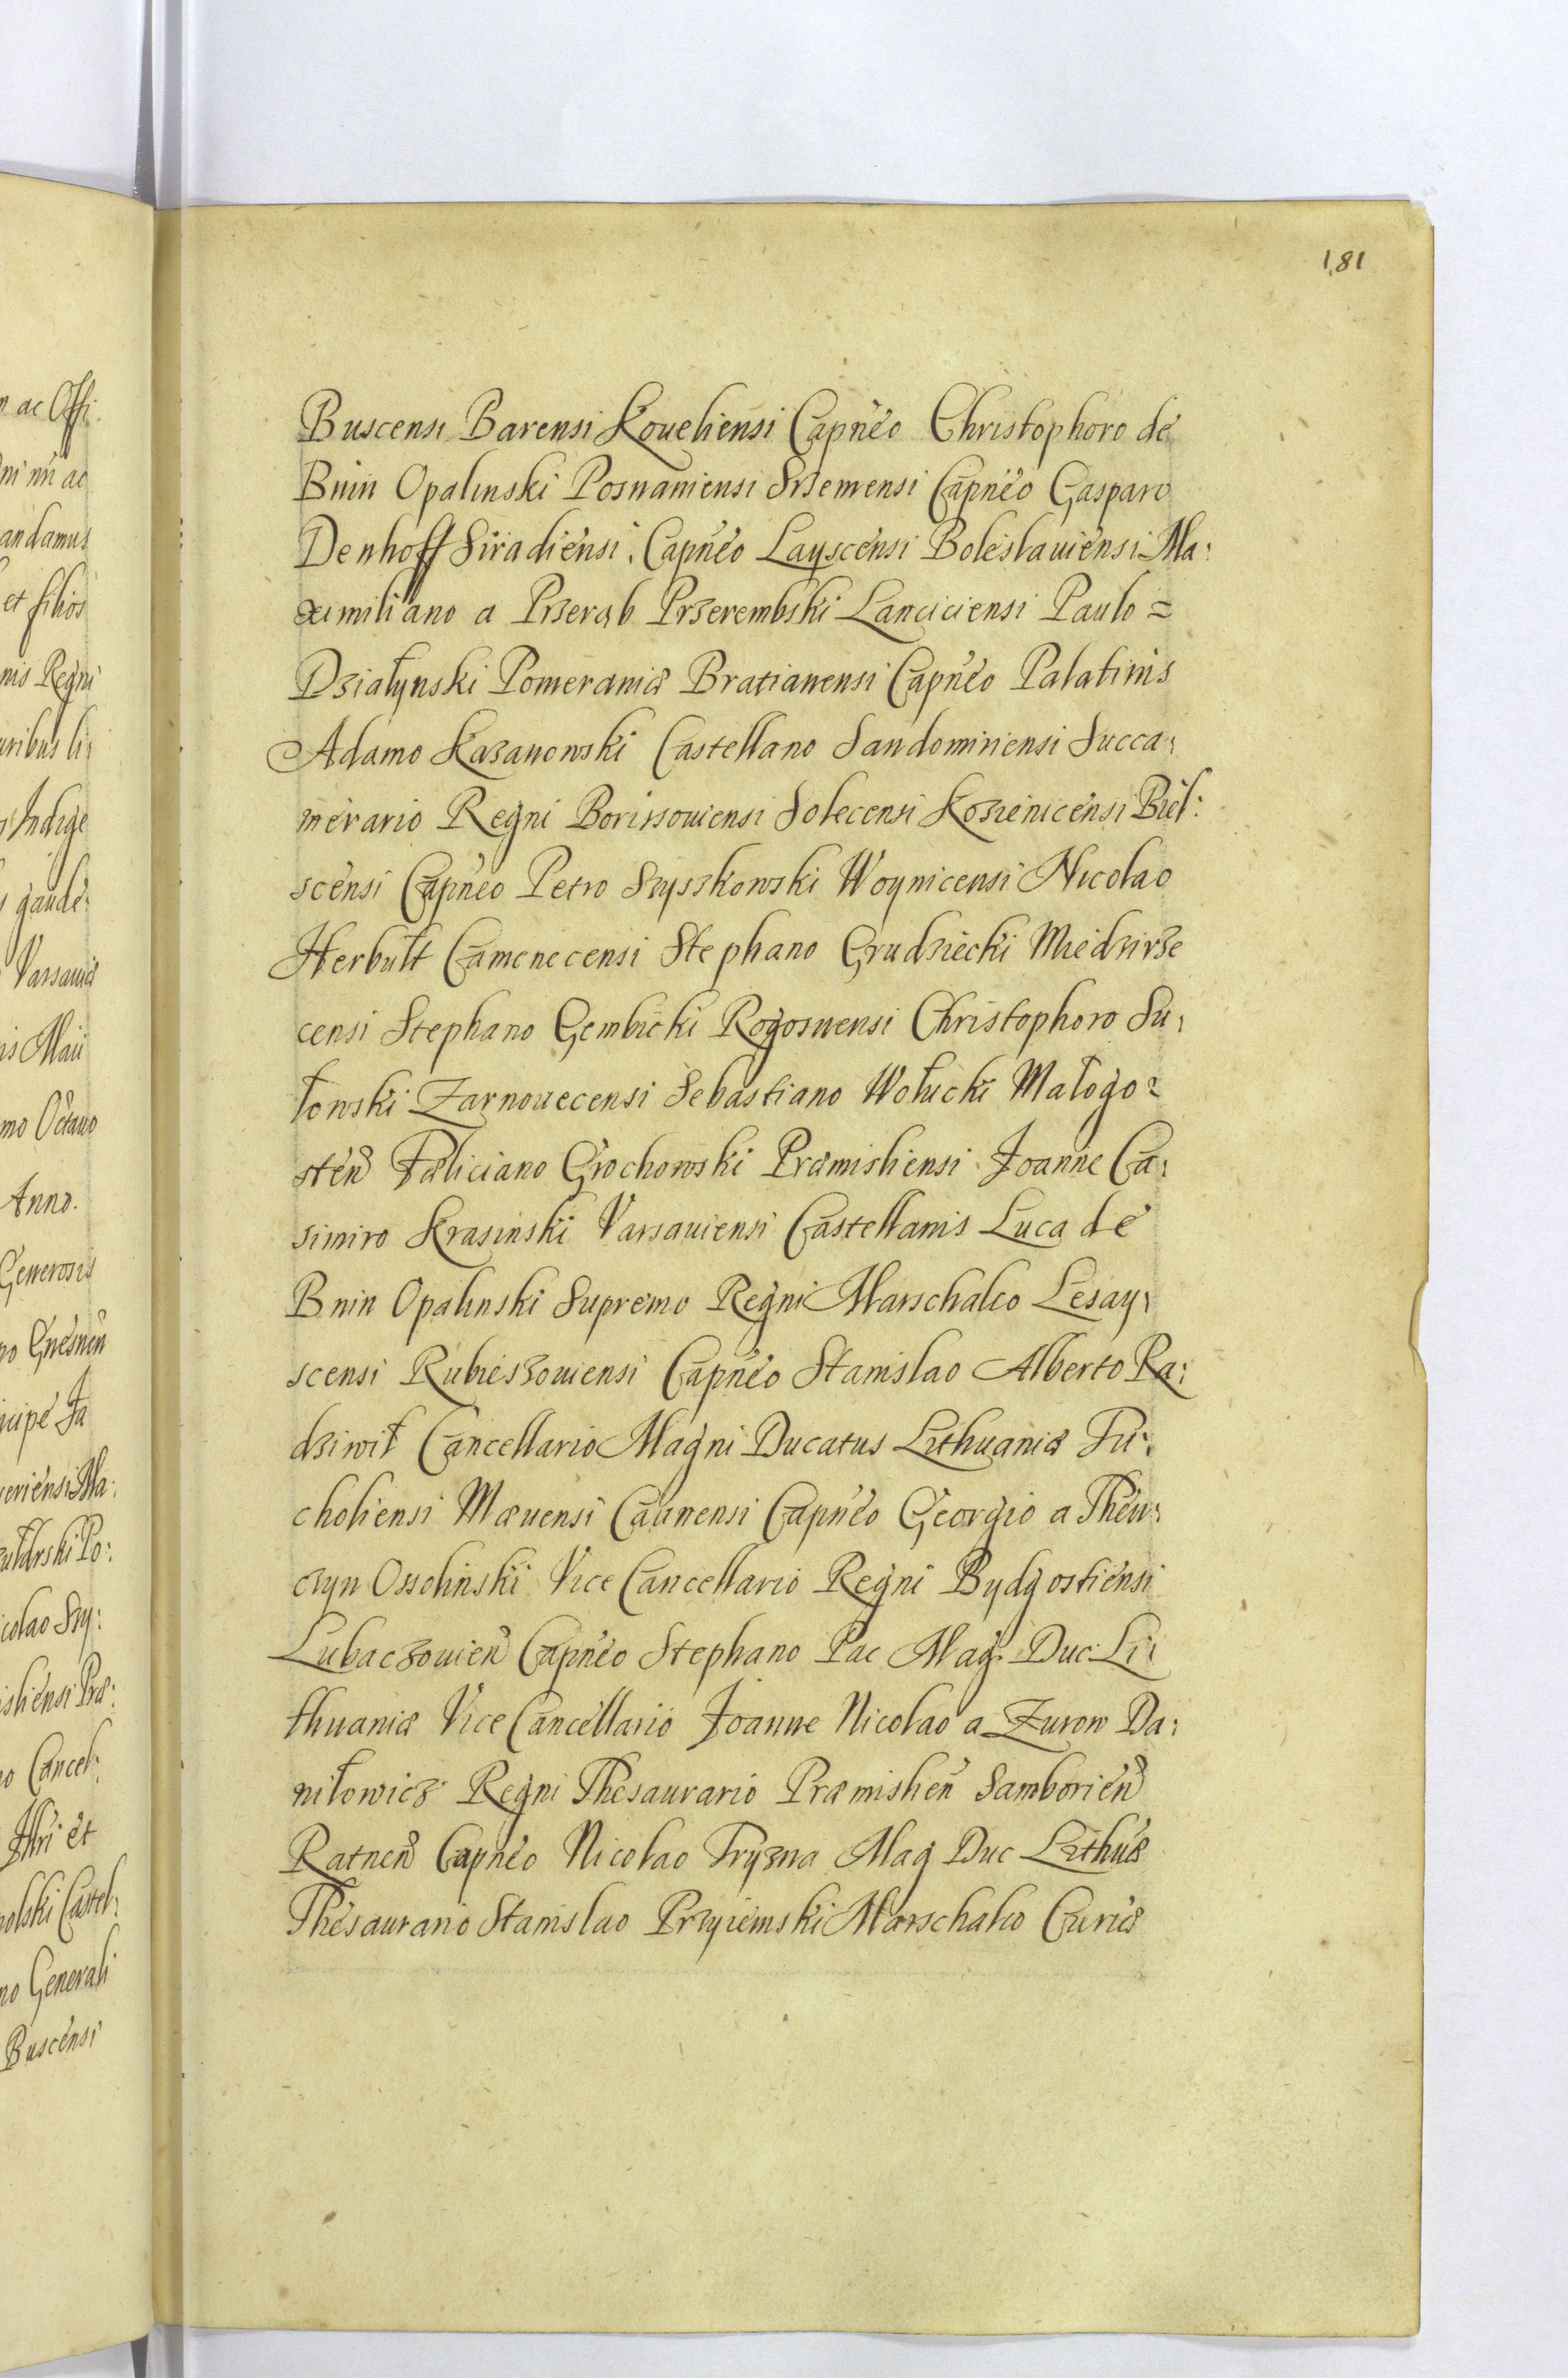 181
Buscensi Barensi Koveliensi Capnēo Christophoro de
Bnin Opalinski Posnaniensi Srzemensi Capnēo Gasparo
Denhoff Siradiensi, Capnēo Layscensi Boleslaviensi Ma:
ximiliano a Przeręb Przerembski Lanciciensi Paulo =
Działynski Pomeraniæ Bratianensi Capnēo Palatinis
Adamo Kazanowski Castellano Sandomiriensi Succa:
merario Regni Borissoviensi Solecensi Kozienicensi Biel:
scensi Capnēo Petro Szyszkowski Woynicensi Nicolao
Herbułt Camenecensi Stephano Grudziecki Miedzirze
censi Stephano Gembicki Rogoznensi Christophoro Su:
łowski Zarnovecensi Sebastiano Wołucki Małogo:
steñ Fæliciano Grochowski Præmisliensi Joanne Ca:
simiro Krasinski Varsaviensi Castellanis Luca de
Bnin Opalinski Supremo Regni Marschalco Lesay:
scensi Rubieszoviensi Capnēo Stanislao Alberto Ra:
dziwił Cancellario Magni Ducatus Lithuaniæ Tu:
choliensi Mævensi Caunensi Capnēo Georgio a Then:
czyn Ossolinski Vice Cancellario Regni Bydgostiensi
Lubaczovieñ Capnēo Stephano Pac Mag. Duc: Li:
thuaniæ Vice Cancellario Joanne Nicolao a Zurow Da:
niłowicz Regni Thesaurario Præmislieñ Samborieñ
Ratneñ Capnēo Nicolao Tryzna Mag Duc Lithuæ
Thesaurario Stanislao Przyiemski Marschalco Curiæ
n ac Offi:
andamus
et filios
nis Regni
Indige
gaude:
Varsaviæ
is Maii
mo Octavo
Anno.
Generosis
no Gnesneñ
icipe Ja
eriensi Ma:
colao Szy:
sliensi Præ:
o Cancel:
olski Castel:
no Generali
Buscensi